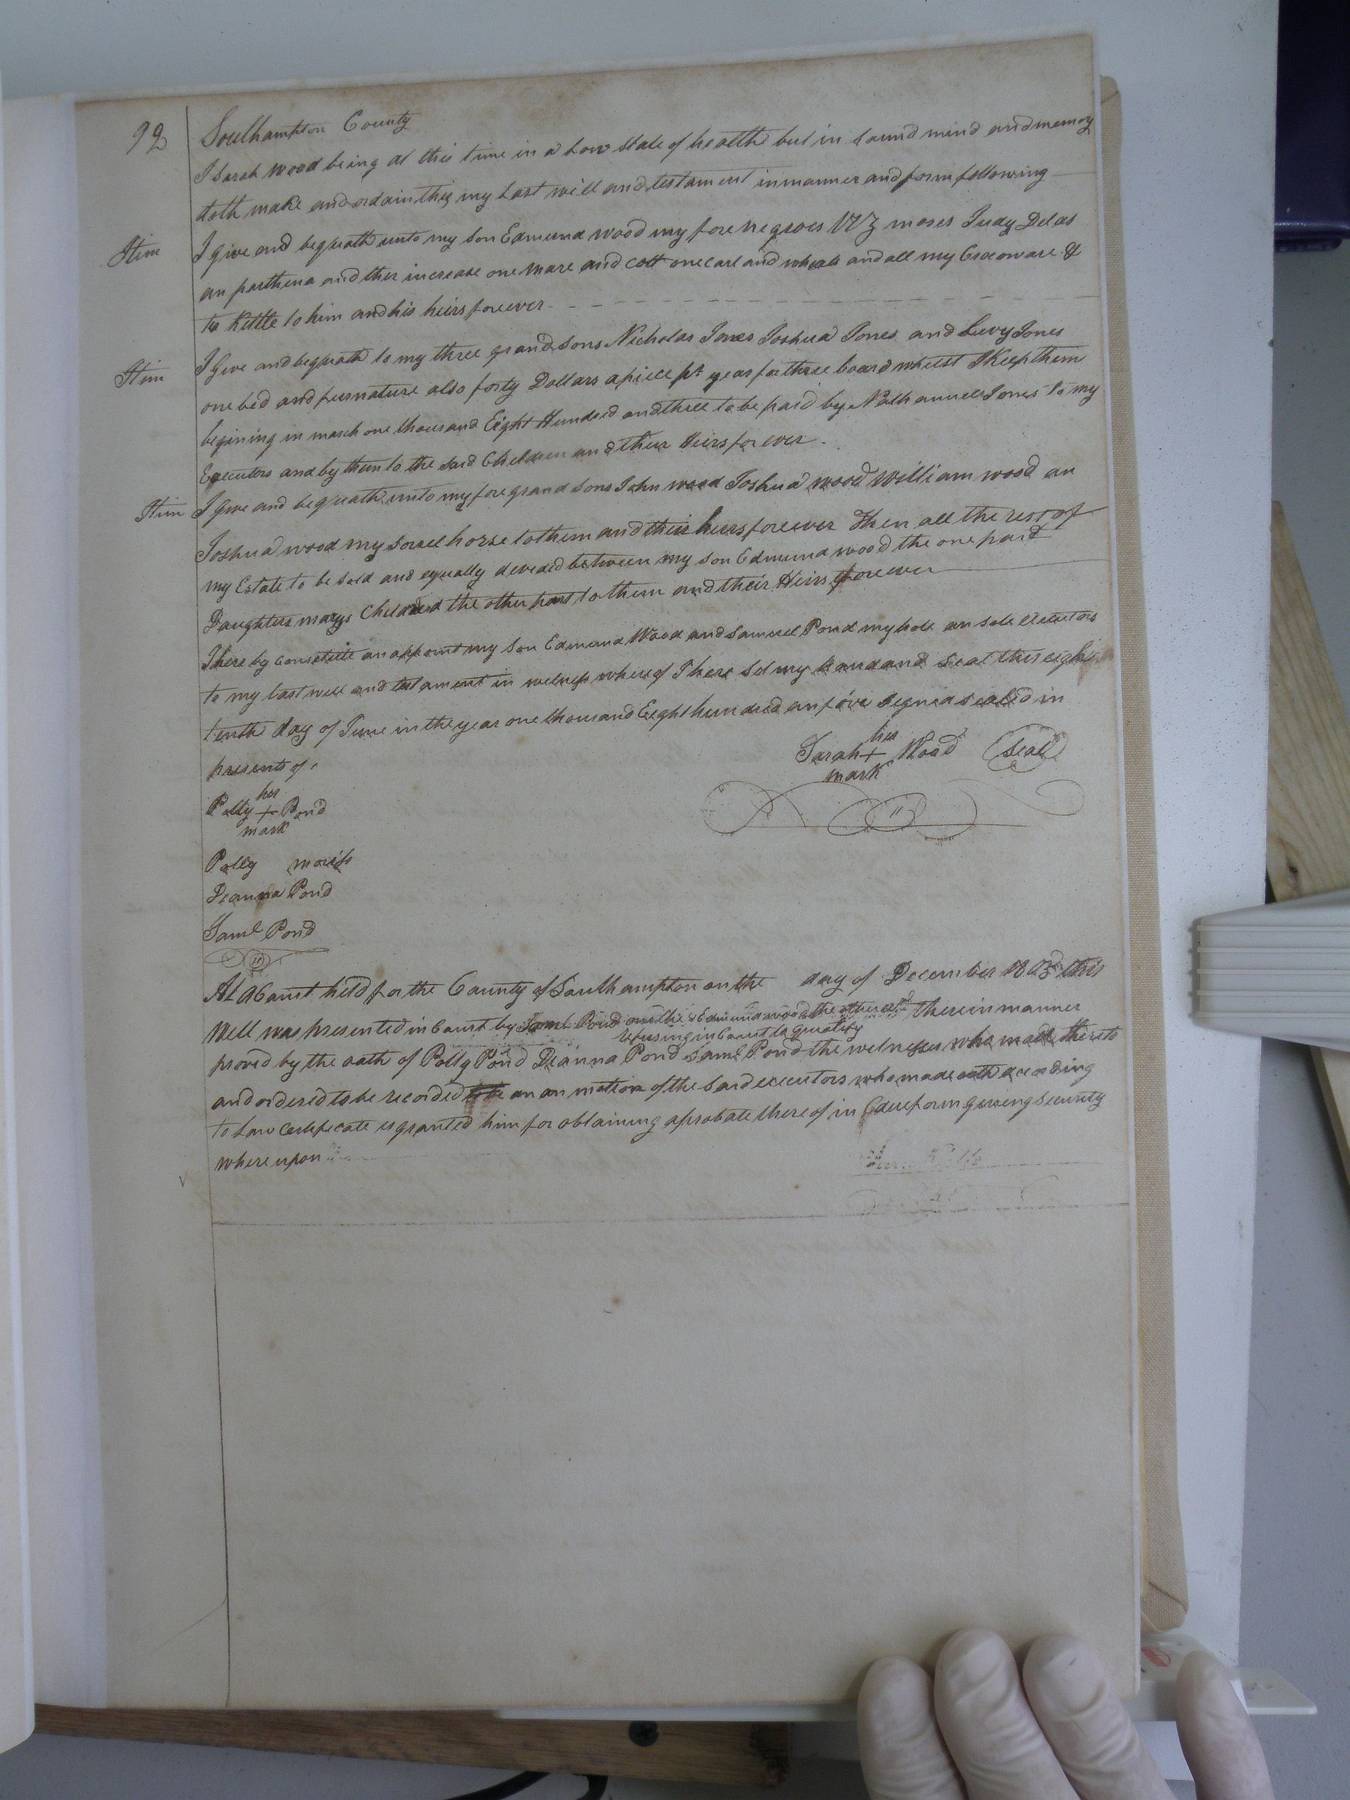 92
Southampton County
I Sarah Wood being at this time in a Low State of health but in Sound mind and memory
doth make and ordain this my Last will and testament in manner and form following
Itim I give and bequeath unto my Son Edmund Wood my fore negroes Viz moses Judy Delas
an parthena and ther increase one mare and colt one cart and wheals and all my
te Kittle to him and his heirs forever
Itim I Give and bequeath to my three grand Sons Nicholas Jones Joshua Jones and Levy Jones
one bed and furnature also forty Dollars a piece pr year for three board whilst I Keep them
begining in march one thousand Eight Hundred and three to be paid by Nathannuel Jones to my
Executors and by them to the Said Children and their Heirs for ever.
Itim I give and bequeath unto my fore grand Sons John wood Joshua wood William wood an
Joshua wood my Sorrel horse to them and their heirs forever then all the rest of
my Estate to be Sold and equally devided between my Son Edmund wood the one part
Daughters marys Children the other part to them and their Heirs forever
I here by constitute an appoint my Son Edmund Wood and Samuel Pond my hole an sole Executors
to my last will and testament in witness whereof I here Set my hand and Seal this eigh
tenth day of June in the year one thousand Eight hundred an five Signed Sealed in
presents of
Sarah her + mark Wood (Seal)
Polly her + mark Pond
Polly
Deanna Pond
Saml Pond
At a Court held for the County of Southampton on the day of December 1805 this
Will was presented in Court by Saml Pond one the & Edmund wood the other exr therein manner
refusing in Court to qualify
proved by the oath of Polly Pond Deanna Pond Saml Pond the witnesses who made thereto
and ordered to be recorded an on motion of the Said executors who made oath according
to Law Certificate is granted him for obtaining a probate there of in Due form giveing Security
where upon